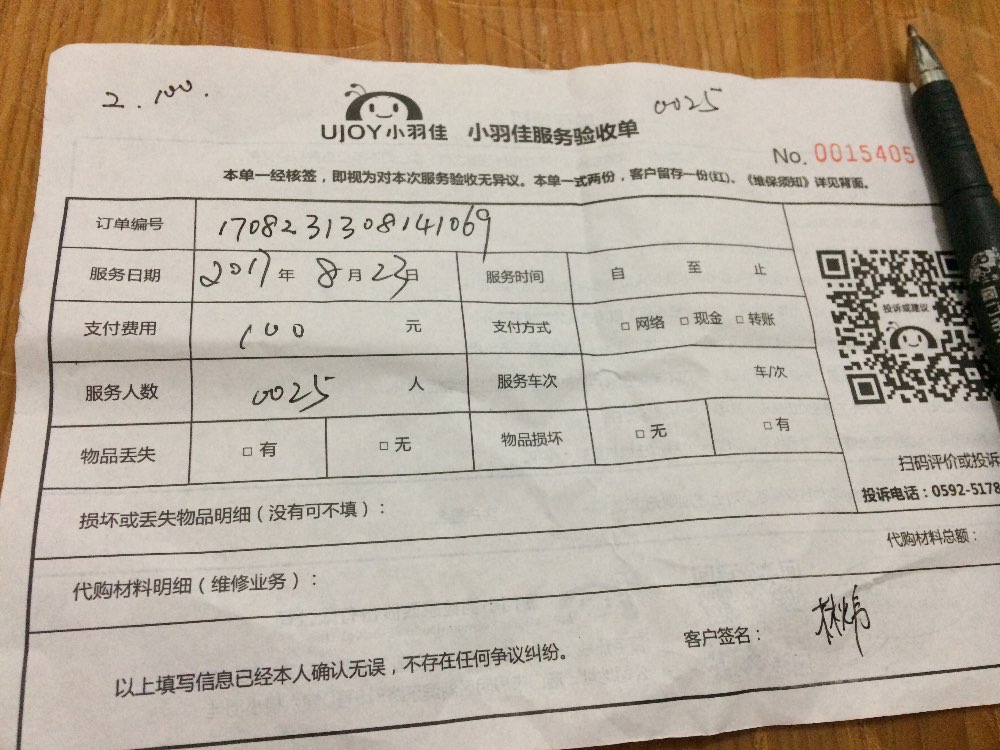 2.100.
0025
UJOY小羽佳 小羽佳服务验收单
No. 0015405
本单一经核签，即视为对本次服务验收无异议。本单一式两份，客户留存一份(红)、《维保须知》详见背面。
订单编号 1708231308141069
服务日期 2017年 8月23日 服务时间 自 至 止
支付费用 100 元 支付方式 □ 网络 □ 现金 □ 转账
投诉或建议
服务人数 0025 人 服务车次 车/次
物品丢失 □ 有 □ 无 物品损坏 □ 无 □ 有
扫码评价或投诉
投诉电话：0592-5178
损坏或丢失物品明细（没有可不填）：
代购材料总额：
代购材料明细（维修业务）：
客户签名：
以上填写信息已经本人确认无误，不存在任何争议纠纷。